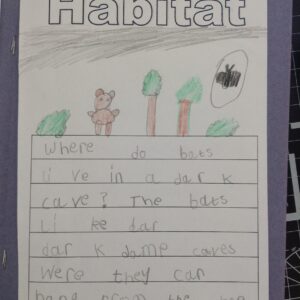 Habitat
Where do bats
live in a dark
cave? The bats
like dar
dark dame caves
Were they can
hang from the